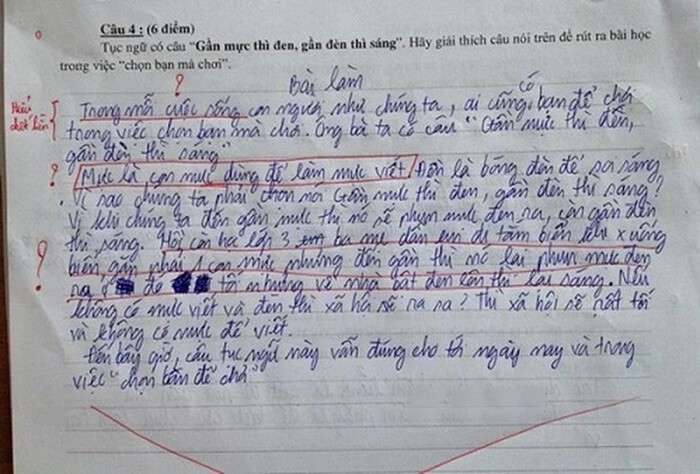 Câu 4 : (6 điểm)
Tục ngữ có câu “Gần mực thì đen, gần đèn thì sáng”. Hãy giải thích câu nói trên để rút ra bài học
trong việc “chọn bạn mà chơi”.
?
Bài làm
Trong mỗi cuộc sống con người như chúng ta, ai cũng có bạn để chơi
trong việc chọn bạn mà chơi. Ông bà ta có câu “Gần mực thì đen,
gần đèn thì sáng”
? Mực là con mực dùng để làm mực viết. Đèn là bóng đèn để ra sáng
. Vì sao chúng ta phải chọn nơi Gần mực thì đen, gần đèn thì sáng?
Vì khi chúng ta đến gần mực thì nó sẽ phun mực đen ra, còn gần đèn
thì sáng. Hồi còn học lớp 3 ba mẹ dẫn em đi tắm biển khi x uống
biển gần phải 1 con mực nhưng đến gần thì nó lại phun mực đen
? ra tối nhưng về nhà bật đèn lên thì lại sáng. Nếu
không có mực viết và đèn thì xã hội sẽ ra ra? Thì xã hội sẽ rất tối
và không có mực để viết.
Đến bây giờ, câu tục ngữ này vẫn đúng cho tới ngày nay và trong
việc “chọn bạn để chơi”